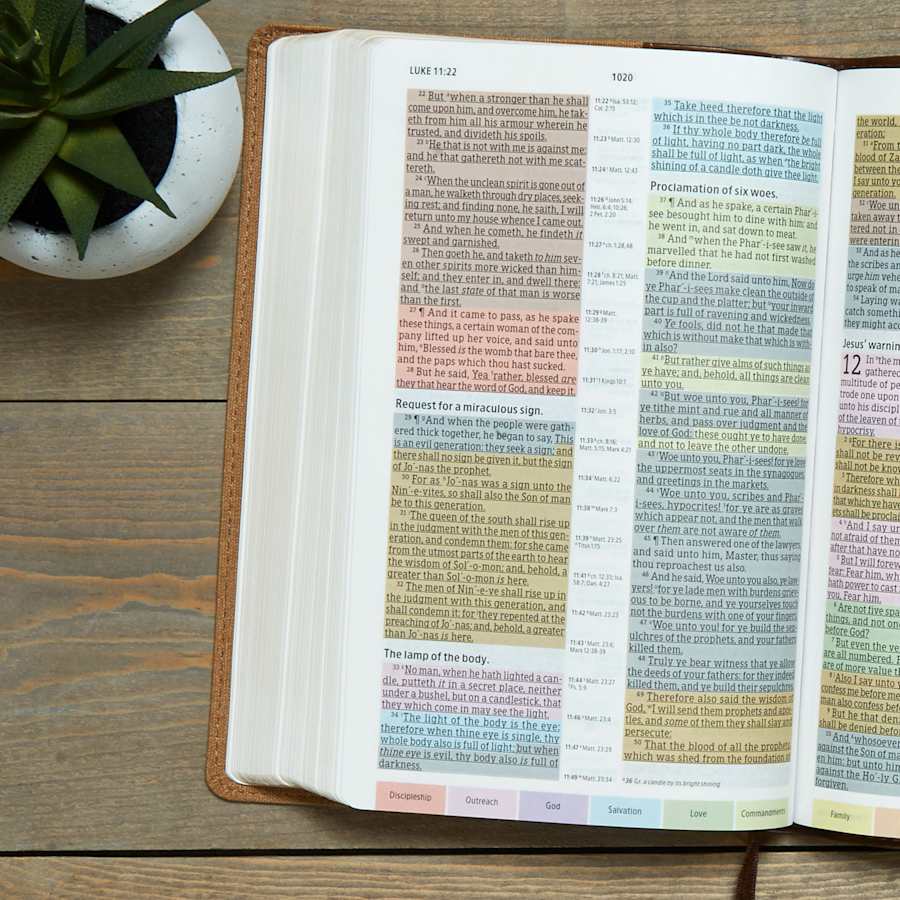 LUKE 11:22
1020
22 But when a stronger than he shall
come upon him, and overcome him, he tak-
eth from him all his armour wherein he
trusted, and divideth his spoils.
23 He that is not with me is against me:
and he that gathereth not with me scat-
tereth.
24 When the unclean spirit is gone out of
a man, he walketh through dry places, seek-
ing rest; and finding none, he saith, I will
return unto my house whence I came out.
25 And when he cometh, he findeth it
swept and garnished.
26 Then goeth he, and taketh to him sev-
en other spirits more wicked than him-
self; and they enter in, and dwell there:
and the last state of that man is worse
than the first.
27 ¶ And it came to pass, as he spake
these things, a certain woman of the com-
pany lifted up her voice, and said unto
him, Blessed is the womb that bare thee,
and the paps which thou hast sucked.
28 But he said, Yea rather, blessed are
they that hear the word of God, and keep it.
Request for a miraculous sign.
29 ¶ And when the people were gath-
ered thick together, he began to say, This
is an evil generation: they seek a sign; and
there shall no sign be given it, but the sign
of Jo´-nas the prophet.
30 For as Jo´-nas was a sign unto the
Nin´-e-vites, so shall also the Son of man
be to this generation.
31 The queen of the south shall rise up
in the judgment with the men of this gen-
eration, and condemn them: for she came
from the utmost parts of the earth to hear
the wisdom of Sol´-o-mon; and, behold, a
greater than Sol´-o-mon is here.
32 The men of Nin´-e-ve shall rise up in
the judgment with this generation, and
shall condemn it: for they repented at the
preaching of Jo´-nas; and, behold, a greater
than Jo´-nas is here.
The lamp of the body.
33 No man, when he hath lighted a can-
dle, putteth it in a secret place, neither
under a bushel, but on a candlestick, that
they which come in may see the light.
34 The light of the body is the eye:
therefore when thine eye is single, thy
whole body also is full of light; but when
thine eye is evil, thy body also is full of
darkness.
11:22 Isa. 53:12;
Col. 2:15
11:23 Matt. 12:30
11:24 Matt. 12:43
11:26 John 5:14;
Heb. 6:4; 10:26;
2 Pet. 2:20
11:27 ch. 1:28,48
11:28 ch. 8:21; Matt.
7:21; James 1:25
11:29 Matt.
12:38-39
11:30 Jon. 1:17; 2:10
11:31 1 Kings 10:1
11:32 Jon. 3:5
11:33 ch. 8:16;
Matt. 5:15; Mark 4:21
11:34 Matt. 6:22
11:38 Mark 7:3
11:39 Matt. 23:25
Titus 1:15
11:41 ch. 12:33; Isa.
58:7; Dan. 4:27
11:42 Matt. 23:23
11:43 Matt. 23:6;
Mark 12:38-39
11:44 Matt. 23:27
Ps. 5:9
11:46 Matt. 23:4
11:47 Matt. 23:29
11:49 Matt. 23:34
35 Take heed therefore that the light
which is in thee be not darkness.
36 If thy whole body therefore be full
of light, having no part dark, the whole
shall be full of light, as when the bright
shining of a candle doth give thee light.
Proclamation of six woes.
37 ¶ And as he spake, a certain Phar´-i-
see besought him to dine with him: and
he went in, and sat down to meat.
38 And when the Phar´-i-see saw it, he
marvelled that he had not first washed
before dinner.
39 And the Lord said unto him, Now do
ye Phar´-i-sees make clean the outside of
the cup and the platter; but your inward
part is full of ravening and wickedness.
40 Ye fools, did not he that made that
which is without make that which is with-
in also?
41 But rather give alms of such things as
ye have; and, behold, all things are clean
unto you.
42 But woe unto you, Phar´-i-sees! for
ye tithe mint and rue and all manner of
herbs, and pass over judgment and the
love of God: these ought ye to have done,
and not to leave the other undone.
43 Woe unto you, Phar´-i-sees! for ye love
the uppermost seats in the synagogues,
and greetings in the markets.
44 Woe unto you, scribes and Phar´-
i-sees, hypocrites! for ye are as graves
which appear not, and the men that walk
over them are not aware of them.
45 ¶ Then answered one of the lawyers,
and said unto him, Master, thus saying
thou reproachest us also.
46 And he said, Woe unto you also, ye law-
yers! for ye lade men with burdens griev-
ous to be borne, and ye yourselves touch
not the burdens with one of your fingers.
47 Woe unto you! for ye build the sep-
ulchres of the prophets, and your fathers
killed them.
48 Truly ye bear witness that ye allow
the deeds of your fathers: for they indeed
killed them, and ye build their sepulchres.
49 Therefore also said the wisdom of
God, I will send them prophets and apos-
tles, and some of them they shall slay and
persecute:
50 That the blood of all the prophets,
which was shed from the foundation of
36 Gr. a candle by its bright shining
Discipleship
Outreach
God
Salvation
Love
Commandments
the world,
eration;
31 From t
blood of Za
between the
I say unto yo
generation.
32 Woe unt
taken away t
were enterin
And as he
the scribes an
urge him vehe
to speak of ma
54 Laying wa
catch somethin
they might acc
Jesus' warnin
12 In the m
gathered
multitude of pe
trode one upon
unto his discipl
of the leaven of
hypocrisy.
2 For there is
shall not be rev
shall not be know
3 Therefore wh
in darkness shall
that which ye hav
ets shall be procla
4 And I say un
not afraid of them
after that have no
5 But I will forew
fear: Fear him, wh
hath power to cast
you, Fear him.
6 Are not five spa
things, and not one
before God?
7 But even the ve
are all numbered. F
are of more value th
8 Also I say unto y
confess me before me
man also confess befo
9 But he that deni
shall be denied befor
10 And whosoever
against the Son of ma
en him: but unto him
against the Ho´-ly G
forgiven.
Family